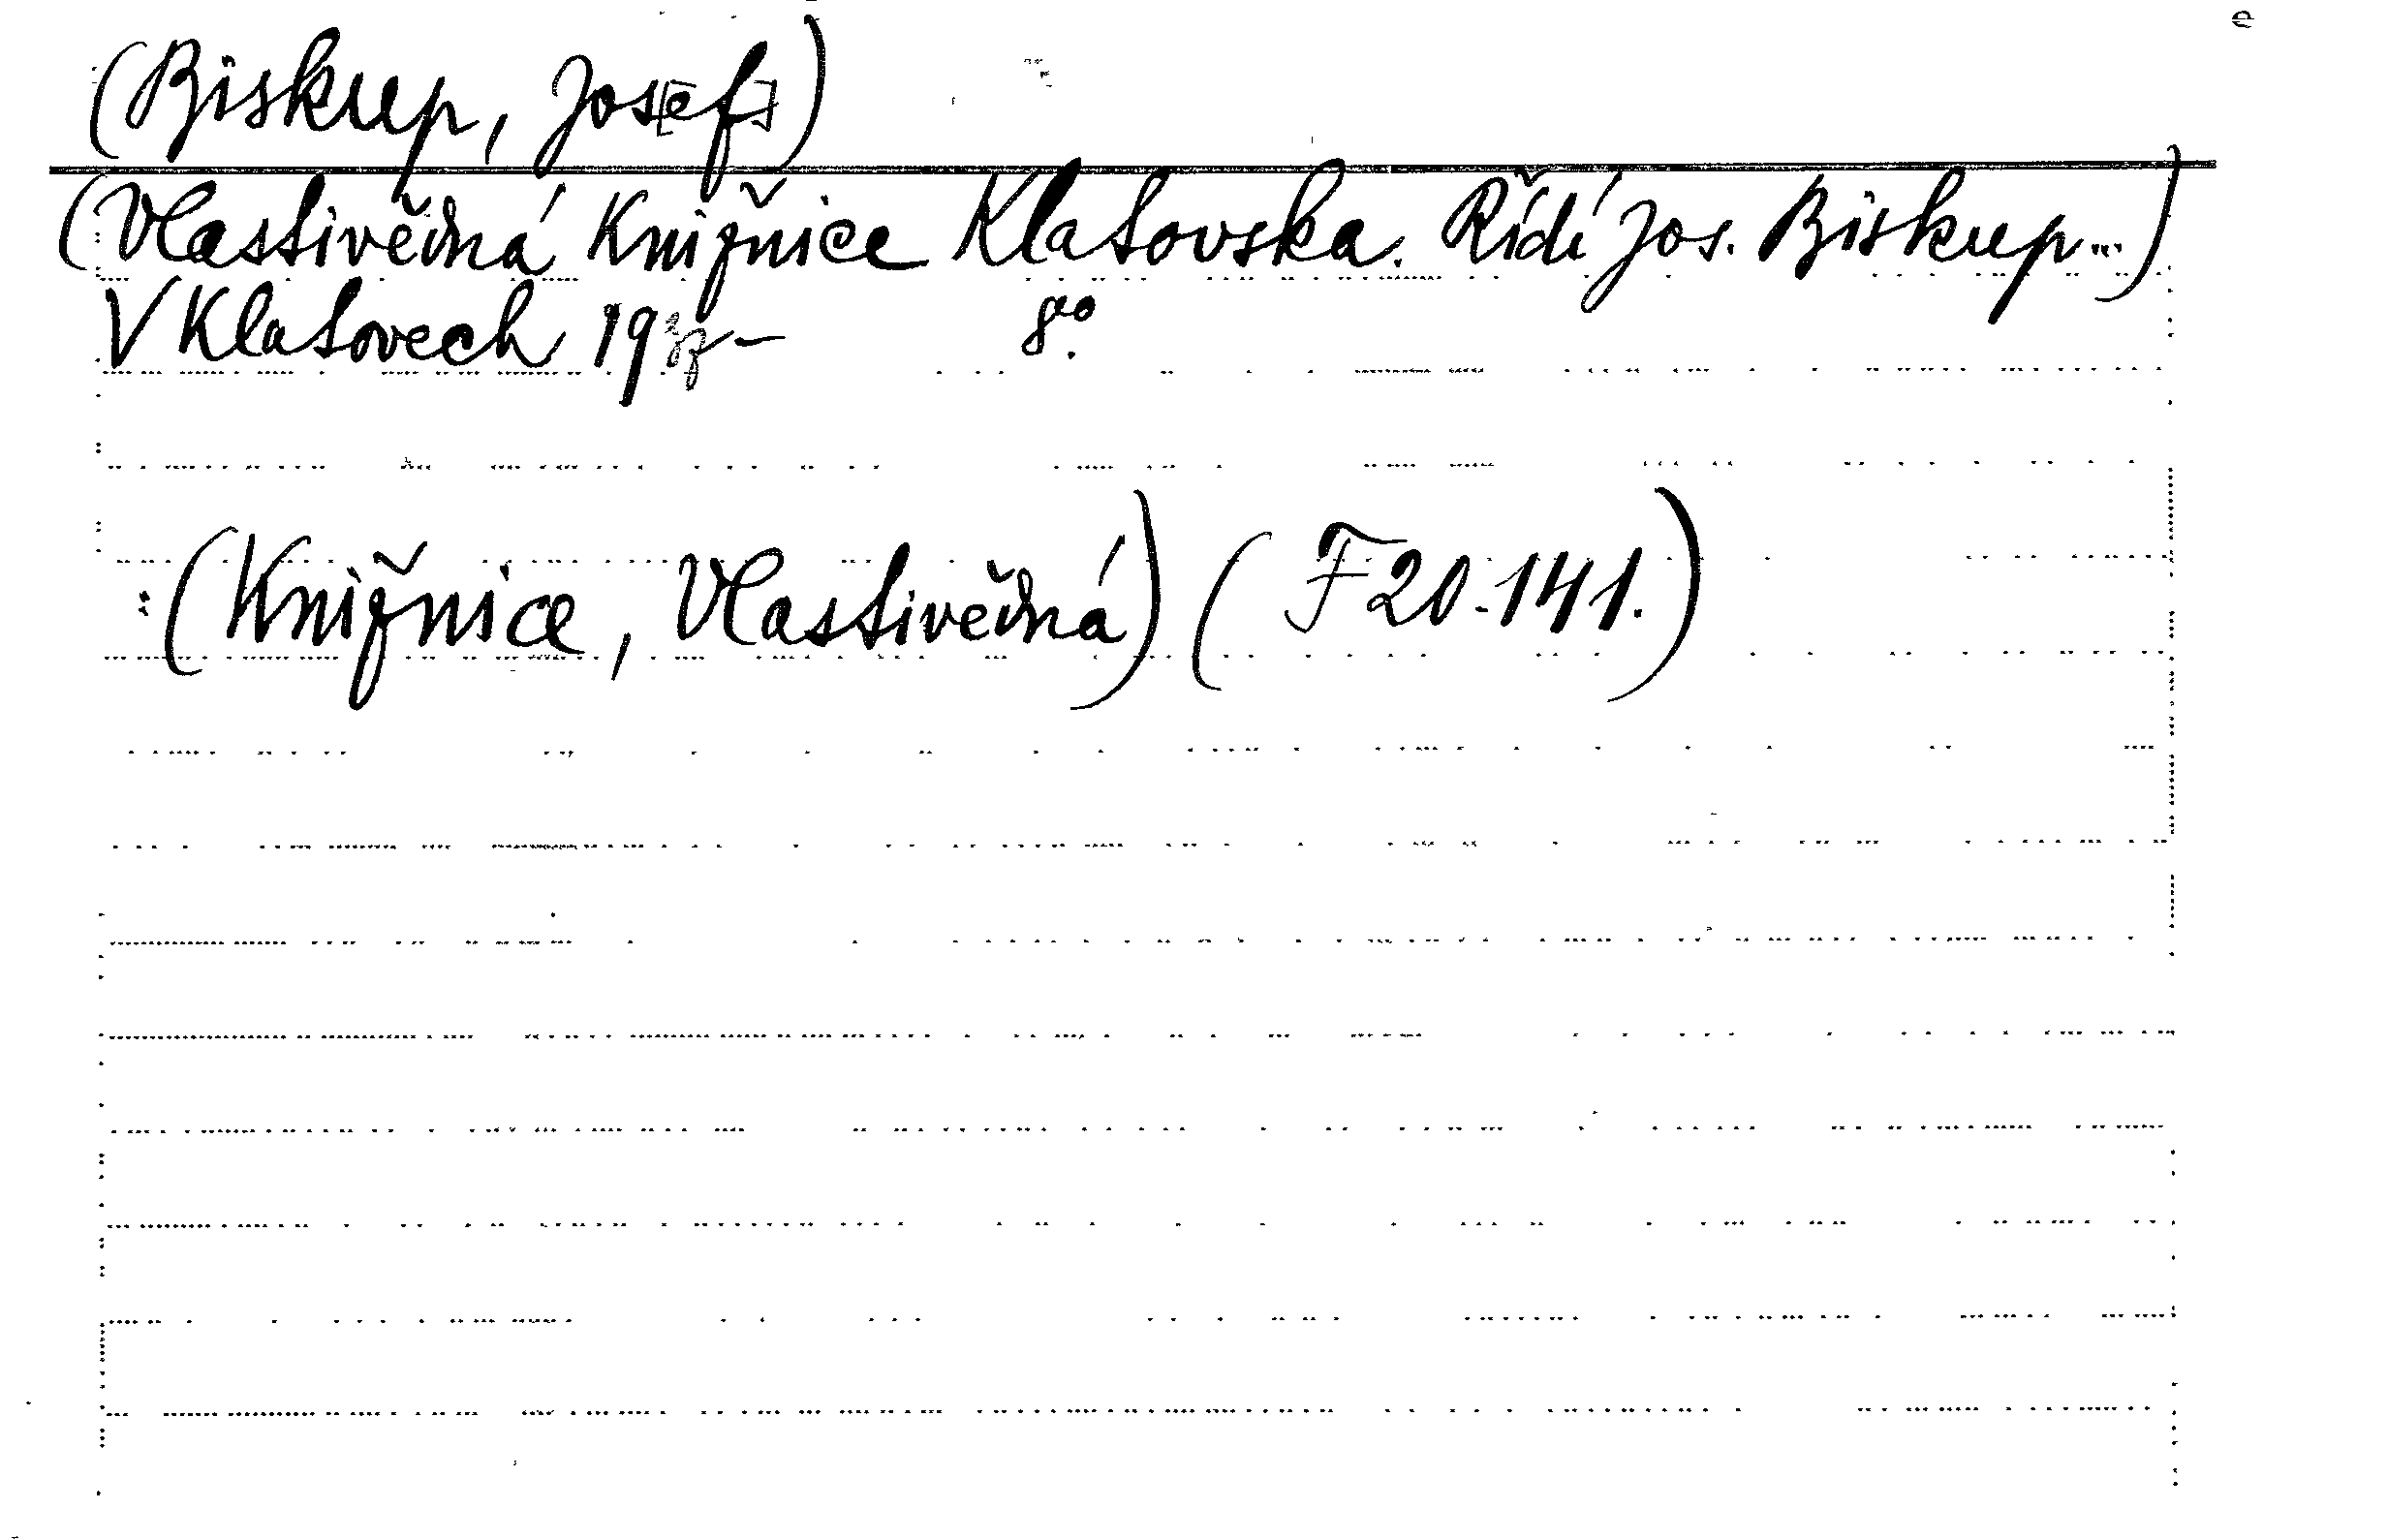 (Biskup, Jos[ef])
(Vlastivědná Knižnice Klatovska. Řídí Jos. Biskup...)
V Klatovech 1937- 8°.
(Knižnice, Vlastivědná) (F 20.141.)